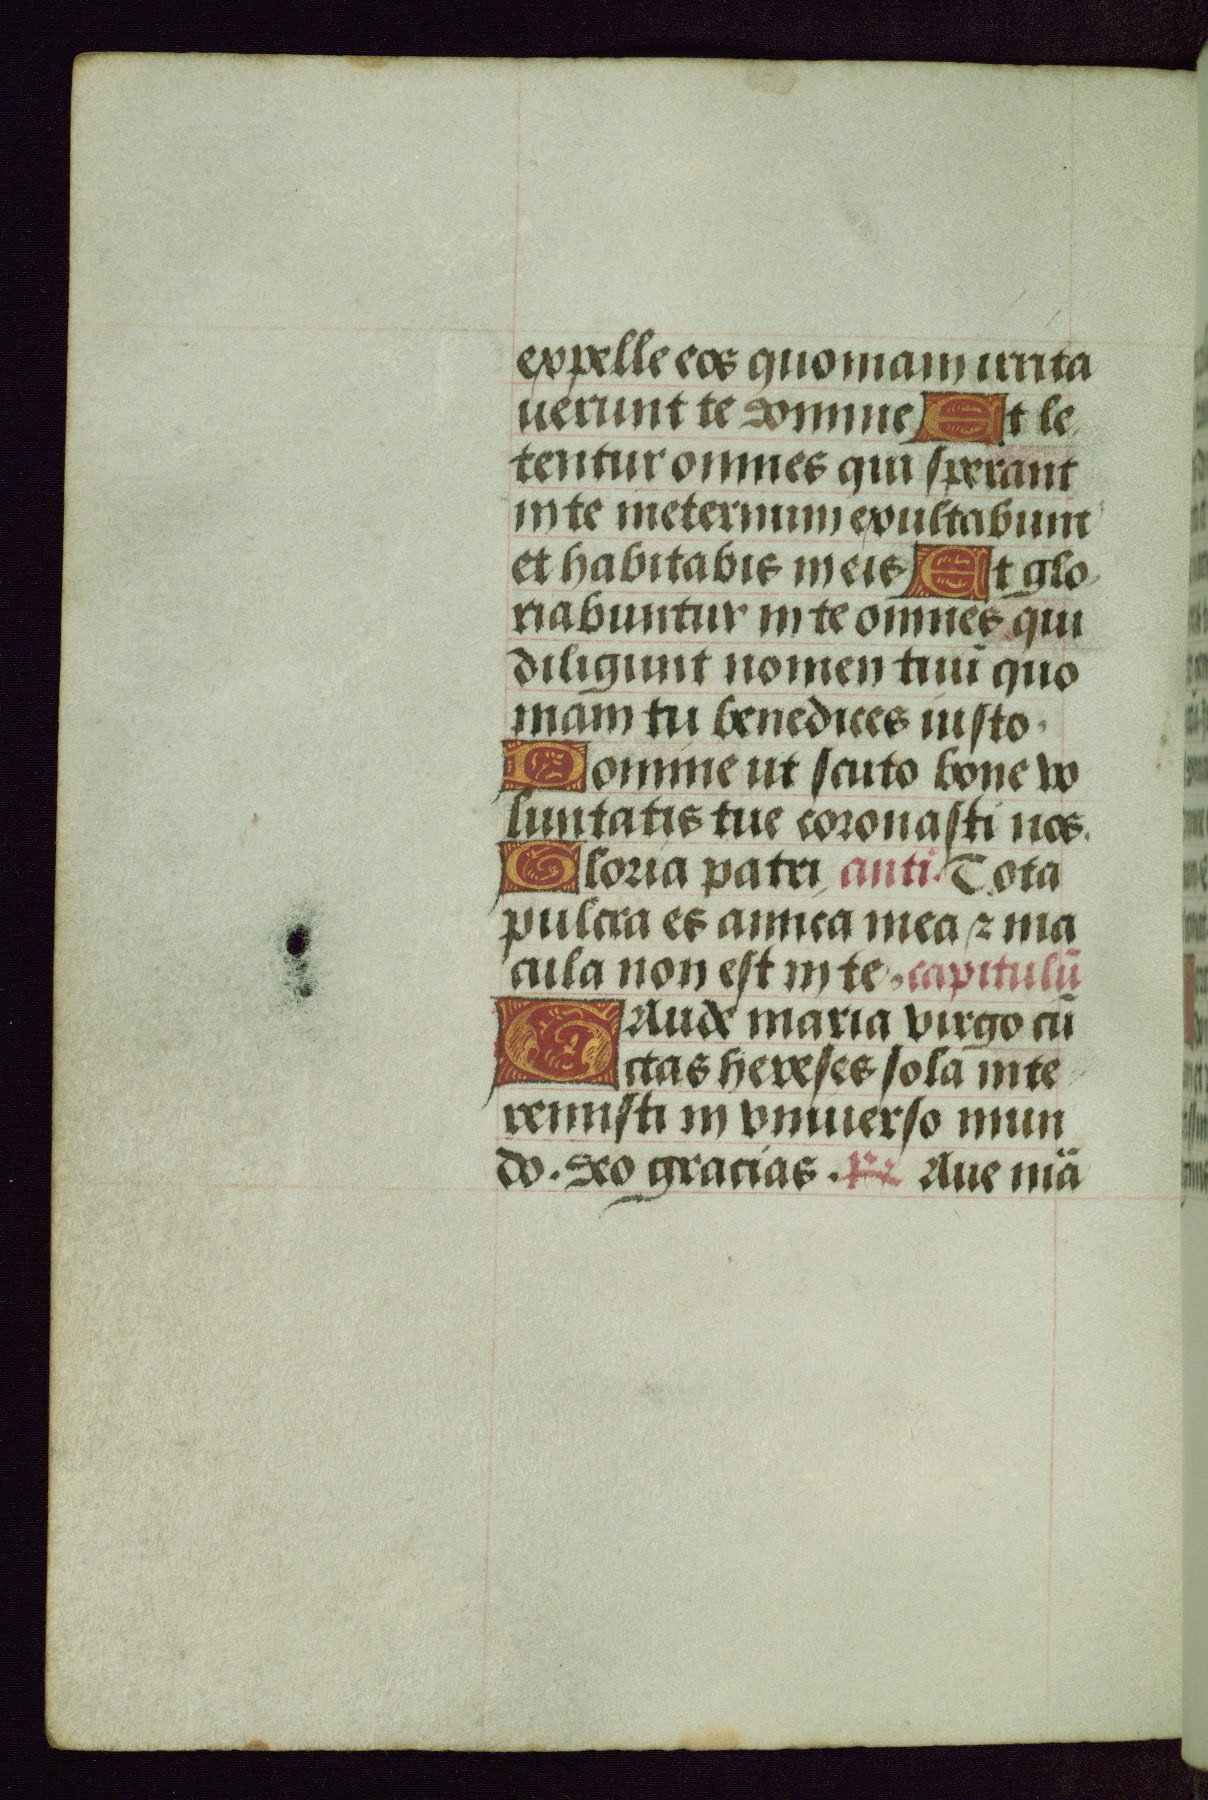 expelle eos quoniam irrita
uerunt te domine Et le
tentur omnes qui sperant
in te in eternum exultabunt
et habitabis in eis Et glo
riabuntur in te omnes qui
diligunt nomen tuū quo
niam tu benedices iusto.
Domine ut scuto bone vo
luntatis tue coronasti nos.
Gloria patri anti. Tota
pulcra es amica mea ⁊ ma
cula non est in te. capitulū
GAude maria virgo cū
ctas hereses sola inte
remisti in vniuerso mun
do. deo gracias. Aue mā